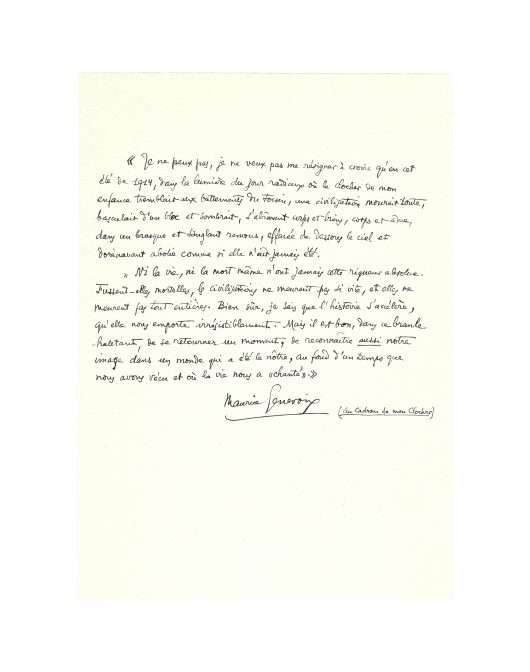 « Je ne peux pas, je ne veux pas me résigner à croire qu'en cet
été de 1914, dans la lumière du jour radieux où le clocher de mon
enfance tremblait aux battements du tocsin, une civilisation mourait toute,
basculait d'un bloc et sombrait, s'abîmant corps et biens, corps et âme,
dans un brusque et sanglant remous, effacée de dessous le ciel et
dorénavant abolie comme si elle n'eût jamais été.
» Ni la vie, ni la mort même n'ont jamais cette rigueur absolue.
Fussent-elles mortelles, les civilisations ne meurent pas si vite, et elles ne
meurent pas tout entières. Bien sûr, je sais que l'histoire s'accélère,
qu'elle nous emporte irrésistiblement. Mais il est bon, dans ce branle
haletant, de se retourner un moment, de reconnaître aussi notre
image dans un monde qui a été le nôtre, au fond d'un temps que
nous avons vécu et où la vie nous a enchantés. »
Maurice Genevoix
(Au Cadran de mon Clocher)